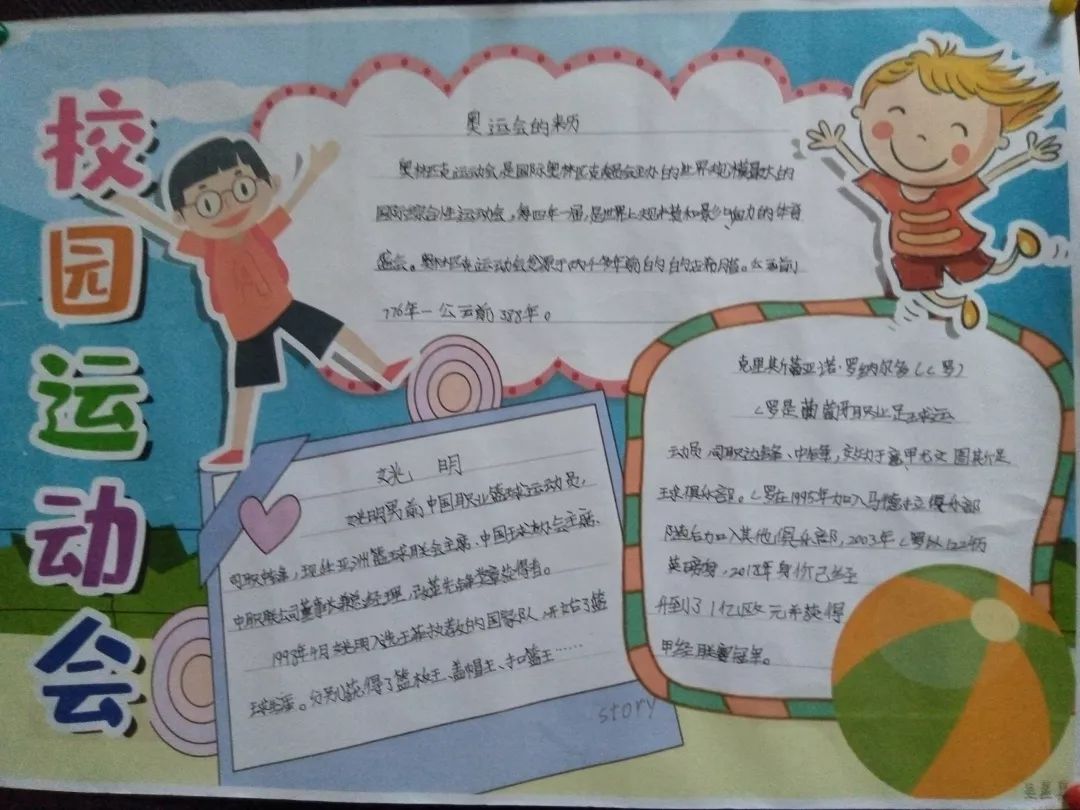 校园运动会
奥运会的来历
奥林匹克运动会是国际奥林匹克委员会主办的世界规模最大的
国际综合性运动会，每四年一届，是世界上规模和影响力的体育
盛会。奥林匹克运动会发源于两千多年前的
776年一公元前388年。
克里斯蒂亚诺·罗纳尔多（C罗）
C罗是葡萄牙职业足球运
动员，司职边锋、中锋，效力于意甲尤文图斯足
球俱乐部。C罗在1995年加入马德里俱乐部
随后加入其他俱乐部，2003年C罗以
2018年身价已经
升到了1亿欧元并获得
甲级联赛冠军。
姚明
姚明男前中国职业篮球运动员，
司职中锋，现任亚洲篮球联会主席、中国球协会主席、
中职联公司董事长兼总经理，
1998年4月姚明入选王非执教的国家队，开始了篮
球生涯。分别获得了篮板王、盖帽王、扣篮王……
story